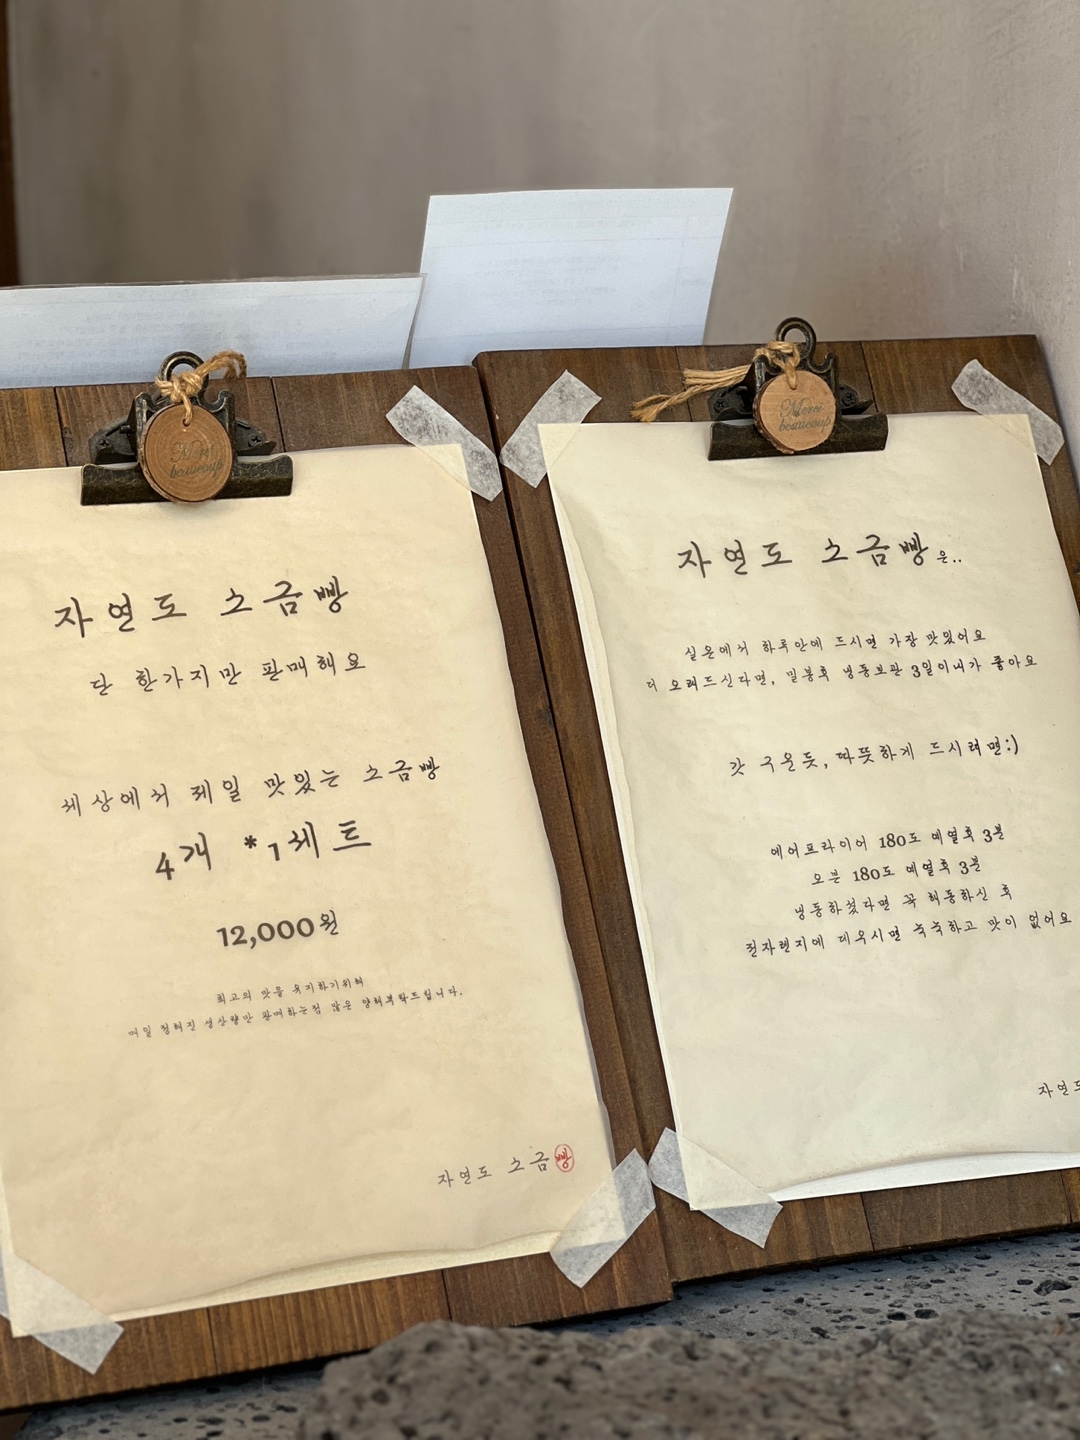 Merci
beaucoup
자연도 소금빵
단 한가지만 판매해요
세상에서 제일 맛있는 소금빵
4개 *1세트
12,000원
최고의 맛을 유지하기위해
매일 정해진 생산량만 판매하는점 많은 양해부탁드립니다.
자연도 소금빵
Merci
beaucoup
자연도 소금빵은..
실온에서 하루안에 드시면 가장 맛있어요
더 오래드신다면, 밀봉후 냉동보관 3일이내가 좋아요
갓 구운듯, 따뜻하게 드시려면:)
에어프라이어 180도 예열후 3분
오븐 180도 예열후 3분
냉동하셨다면 꼭 해동하신 후
전자렌지에 데우시면 눅눅하고 맛이 없어요
자연도